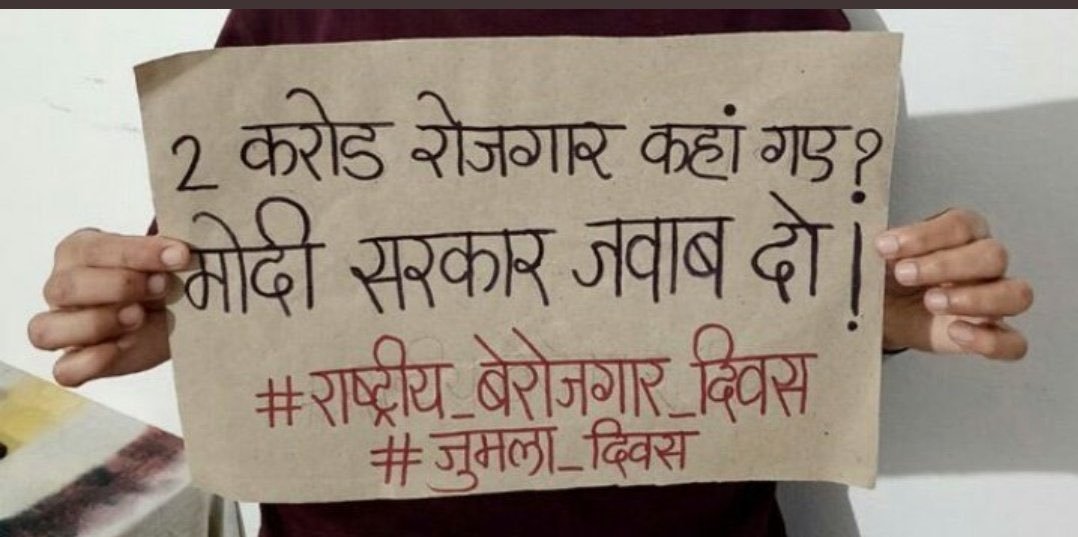 2 करोड रोजगार कहां गए?
मोदी सरकार जवाब दो!
#राष्ट्रीय_बेरोजगार_दिवस
#जुमला_दिवस